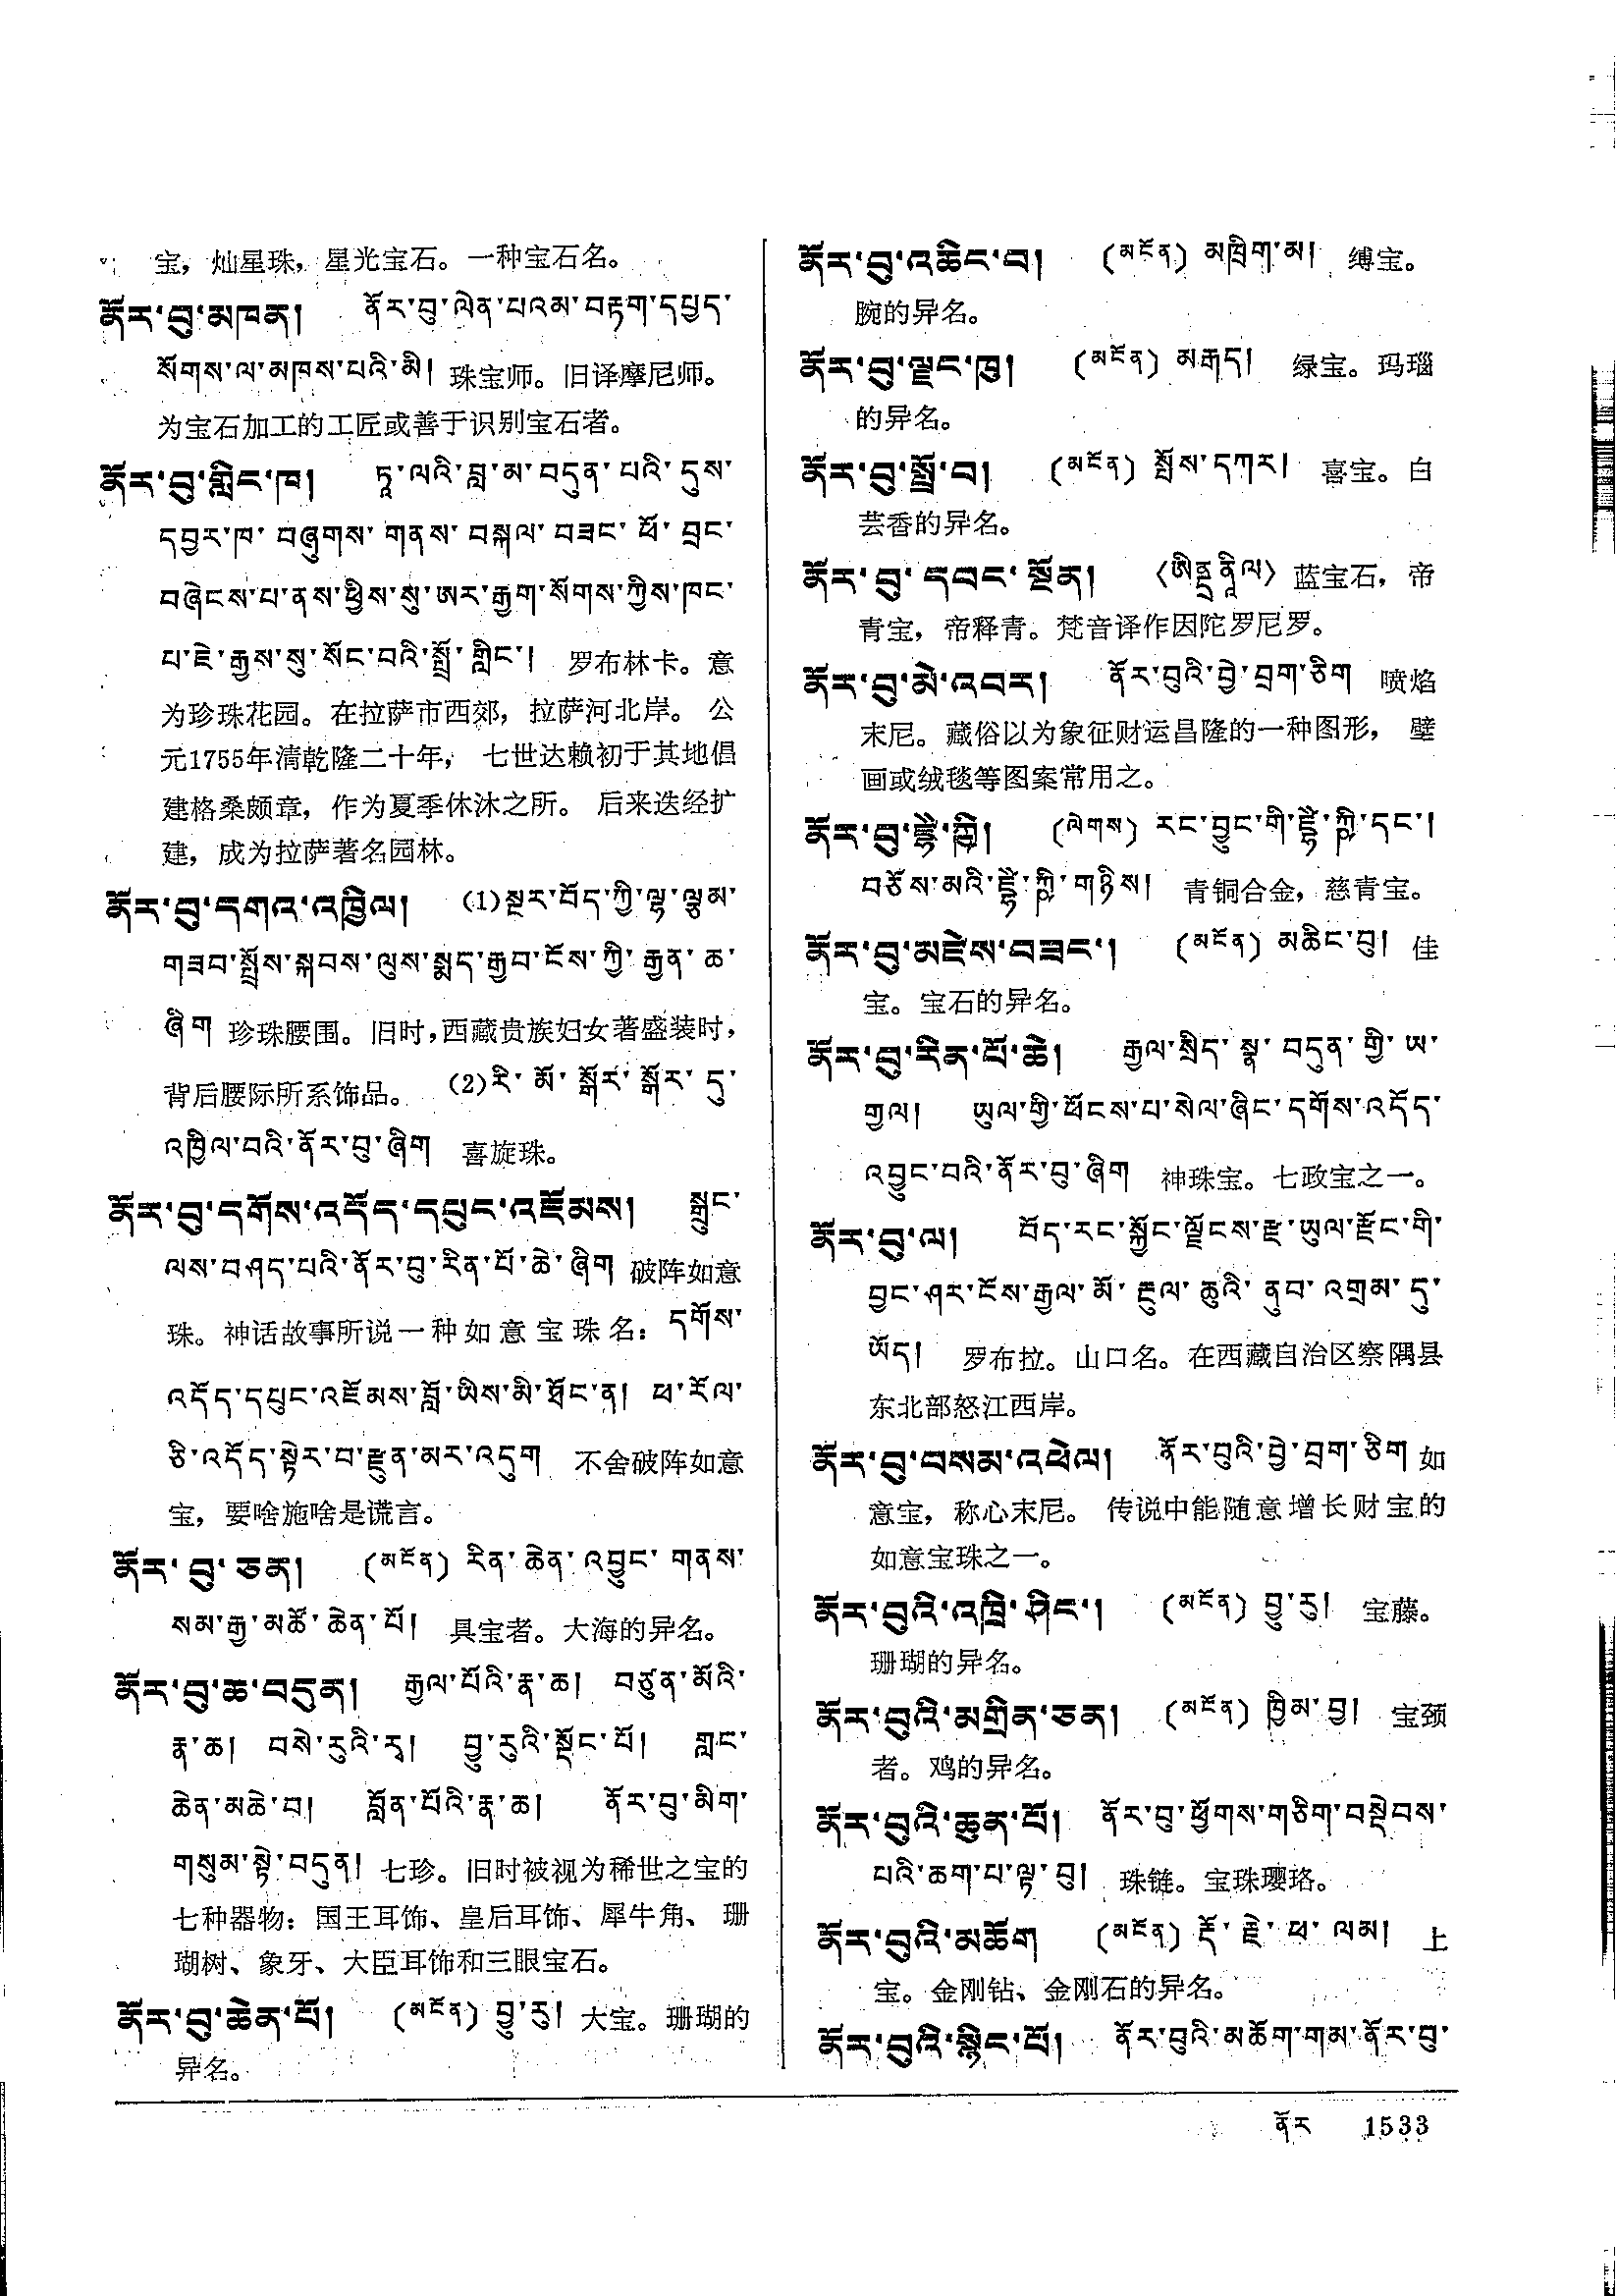 宝，灿星珠，星光宝石。一种宝石名。
ནོར་བུ་མཁན། ནོར་བུ་ལེན་པའམ་བརྟག་དཔྱད་
སོགས་ལ་མཁས་པའི་མི། 珠宝师。旧译摩尼师。
为宝石加工的工匠或善于识别宝石者。
ནོར་བུ་གླིང་ཁ། ཏཱ་ལའི་བླ་མ་བདུན་པའི་དུས་
དབྱར་ཁ་བཞུགས་གནས་བསྐལ་བཟང་ཕོ་བྲང་
བཞེངས་པ་ནས་ཕྱིས་སུ་ཨར་རྒྱག་སོགས་ཀྱིས་ཁང་
པ་ཇེ་རྒྱས་སུ་སོང་བའི་སྤྲོ་གླིང་། 罗布林卡。意
为珍珠花园。在拉萨市西郊，拉萨河北岸。公
元1755年清乾隆二十年，七世达赖初于其地倡
建格桑颇章，作为夏季休沐之所。后来迭经扩
建，成为拉萨著名园林。
ནོར་བུ་དགའ་འཁྱིལ། (1)སྔར་བོད་ཀྱི་ལྷ་ལྕམ་
གཟབ་སྤྲོས་སྐབས་ལུས་སྨད་རྒྱབ་ངོས་ཀྱི་རྒྱན་ཆ་
ཞིག 珍珠腰围。旧时，西藏贵族妇女著盛装时，
背后腰际所系饰品。 (2)རི་མོ་སྒོར་སྒོར་དུ་
འཁྱིལ་བའི་ནོར་བུ་ཞིག 喜旋珠。
ནོར་བུ་དགོས་འདོད་དཔུང་འཇོམས། སྒྲུང་
ལས་བཤད་པའི་ནོར་བུ་རིན་པོ་ཆེ་ཞིག 破阵如意
珠。神话故事所说一种如意宝珠名：དགོས་
འདོད་དཔུང་འཇོམས་བློ་ཡིས་མི་ཐོང་ན། ཕ་རོལ་
ཅི་འདོད་སྟེར་བ་རྫུན་མར་འདུག 不舍破阵如意
宝，要啥施啥是谎言。
ནོར་བུ་ཅན། (མངོན) རིན་ཆེན་འབྱུང་གནས་
སམ་རྒྱ་མཚོ་ཆེན་པོ། 具宝者。大海的异名。
ནོར་བུ་ཆ་བདུན། རྒྱལ་པོའི་རྣ་ཆ། བཙུན་མོའི་
རྣ་ཆ། བསེ་རུའི་རྭ། བྱུ་རུའི་སྡོང་པོ། གླང་
ཆེན་མཆེ་བ། བློན་པོའི་རྣ་ཆ། ནོར་བུ་མིག་
གསུམ་སྟེ་བདུན། 七珍。旧时被视为稀世之宝的
七种器物：国王耳饰、皇后耳饰、犀牛角、珊
瑚树、象牙、大臣耳饰和三眼宝石。
ནོར་བུ་ཆེན་པོ། (མངོན) བྱུ་རུ། 大宝。珊瑚的
异名。
ནོར་བུ་འཆིང་བ། (མངོན) མཁྲིག་མ། 缚宝。
腕的异名。
ནོར་བུ་ལྗང་ཁུ། (མངོན) མརྒད། 绿宝。玛瑙
的异名。
ནོར་བུ་སྤྲོ་བ། (མངོན) སྤོས་དཀར། 喜宝。白
芸香的异名。
ནོར་བུ་དབང་སྔོན། 〈ཨིནྡྲ་ནཱིལ〉 蓝宝石，帝
青宝，帝释青。梵音译作因陀罗尼罗。
ནོར་བུ་མེ་འབར། ནོར་བུའི་བྱེ་བྲག་ཅིག 喷焰
末尼。藏俗以为象征财运昌隆的一种图形，壁
画或绒毯等图案常用之。
ནོར་བུ་ (ལེགས) རང་བྱུང་གི་ དང་།
བཅོས་མའི་ གཉིས། 青铜合金，慈青宝。
ནོར་བུ་མཛེས་བཟང་། (མངོན) མཆིང་བུ། 佳
宝。宝石的异名。
ནོར་བུ་རིན་པོ་ཆེ། རྒྱལ་སྲིད་སྣ་བདུན་གྱི་ཨ་
གྱལ། ཡུལ་གྱི་ཕོངས་པ་སེལ་ཞིང་དགོས་འདོད་
འབྱུང་བའི་ནོར་བུ་ཞིག 神珠宝。七政宝之一。
ནོར་བུ་ལ། བོད་རང་སྐྱོང་ལྗོངས་རྫ་ཡུལ་རྫོང་གི་
བྱང་ཤར་ངོས་རྒྱལ་མོ་རྔུལ་ཆུའི་ནུབ་འགྲམ་དུ་
ཡོད། 罗布拉。山口名。在西藏自治区察隅县
东北部怒江西岸。
ནོར་བུ་བསམ་འཕེལ། ནོར་བུའི་བྱེ་བྲག་ཅིག 如
意宝，称心末尼。传说中能随意增长财宝的
如意宝珠之一。
ནོར་བུའི་འཁྲི་ཤིང་། (མངོན) བྱུ་རུ། 宝藤。
珊瑚的异名。
ནོར་བུའི་མགྲིན་ཅན། (མངོན) ཁྱིམ་བྱ། 宝颈
者。鸡的异名。
ནོར་བུའི་ཆུན་པོ། ནོར་བུ་ཕྱོགས་གཅིག་བསྡེབས་
པའི་ཆག་པ་ལྟ་བུ། 珠链。宝珠璎珞。
ནོར་བུའི་མཆོག (མངོན) རྡོ་རྗེ་ཕ་ལམ། 上
宝。金刚钻、金刚石的异名。
ནོར་བུའི་སྙིང་པོ། ནོར་བུའི་མཆོག་གམ་ནོར་བུ་
ནོར 1533